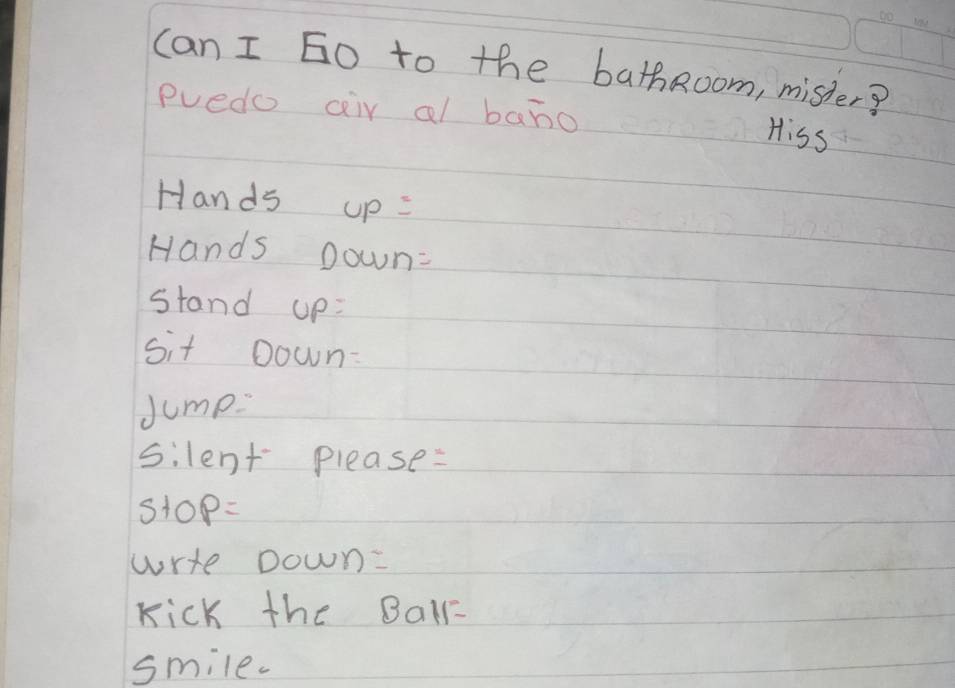 Can I Go to the bathRoom, mister?
Puedo air al baño
Hiss
Hands up=
Hands Down=
Stand up=
Sit Down=
Jump=
Silent Please=
Stop=
wrte Down=
Kick the Ball=
Smile